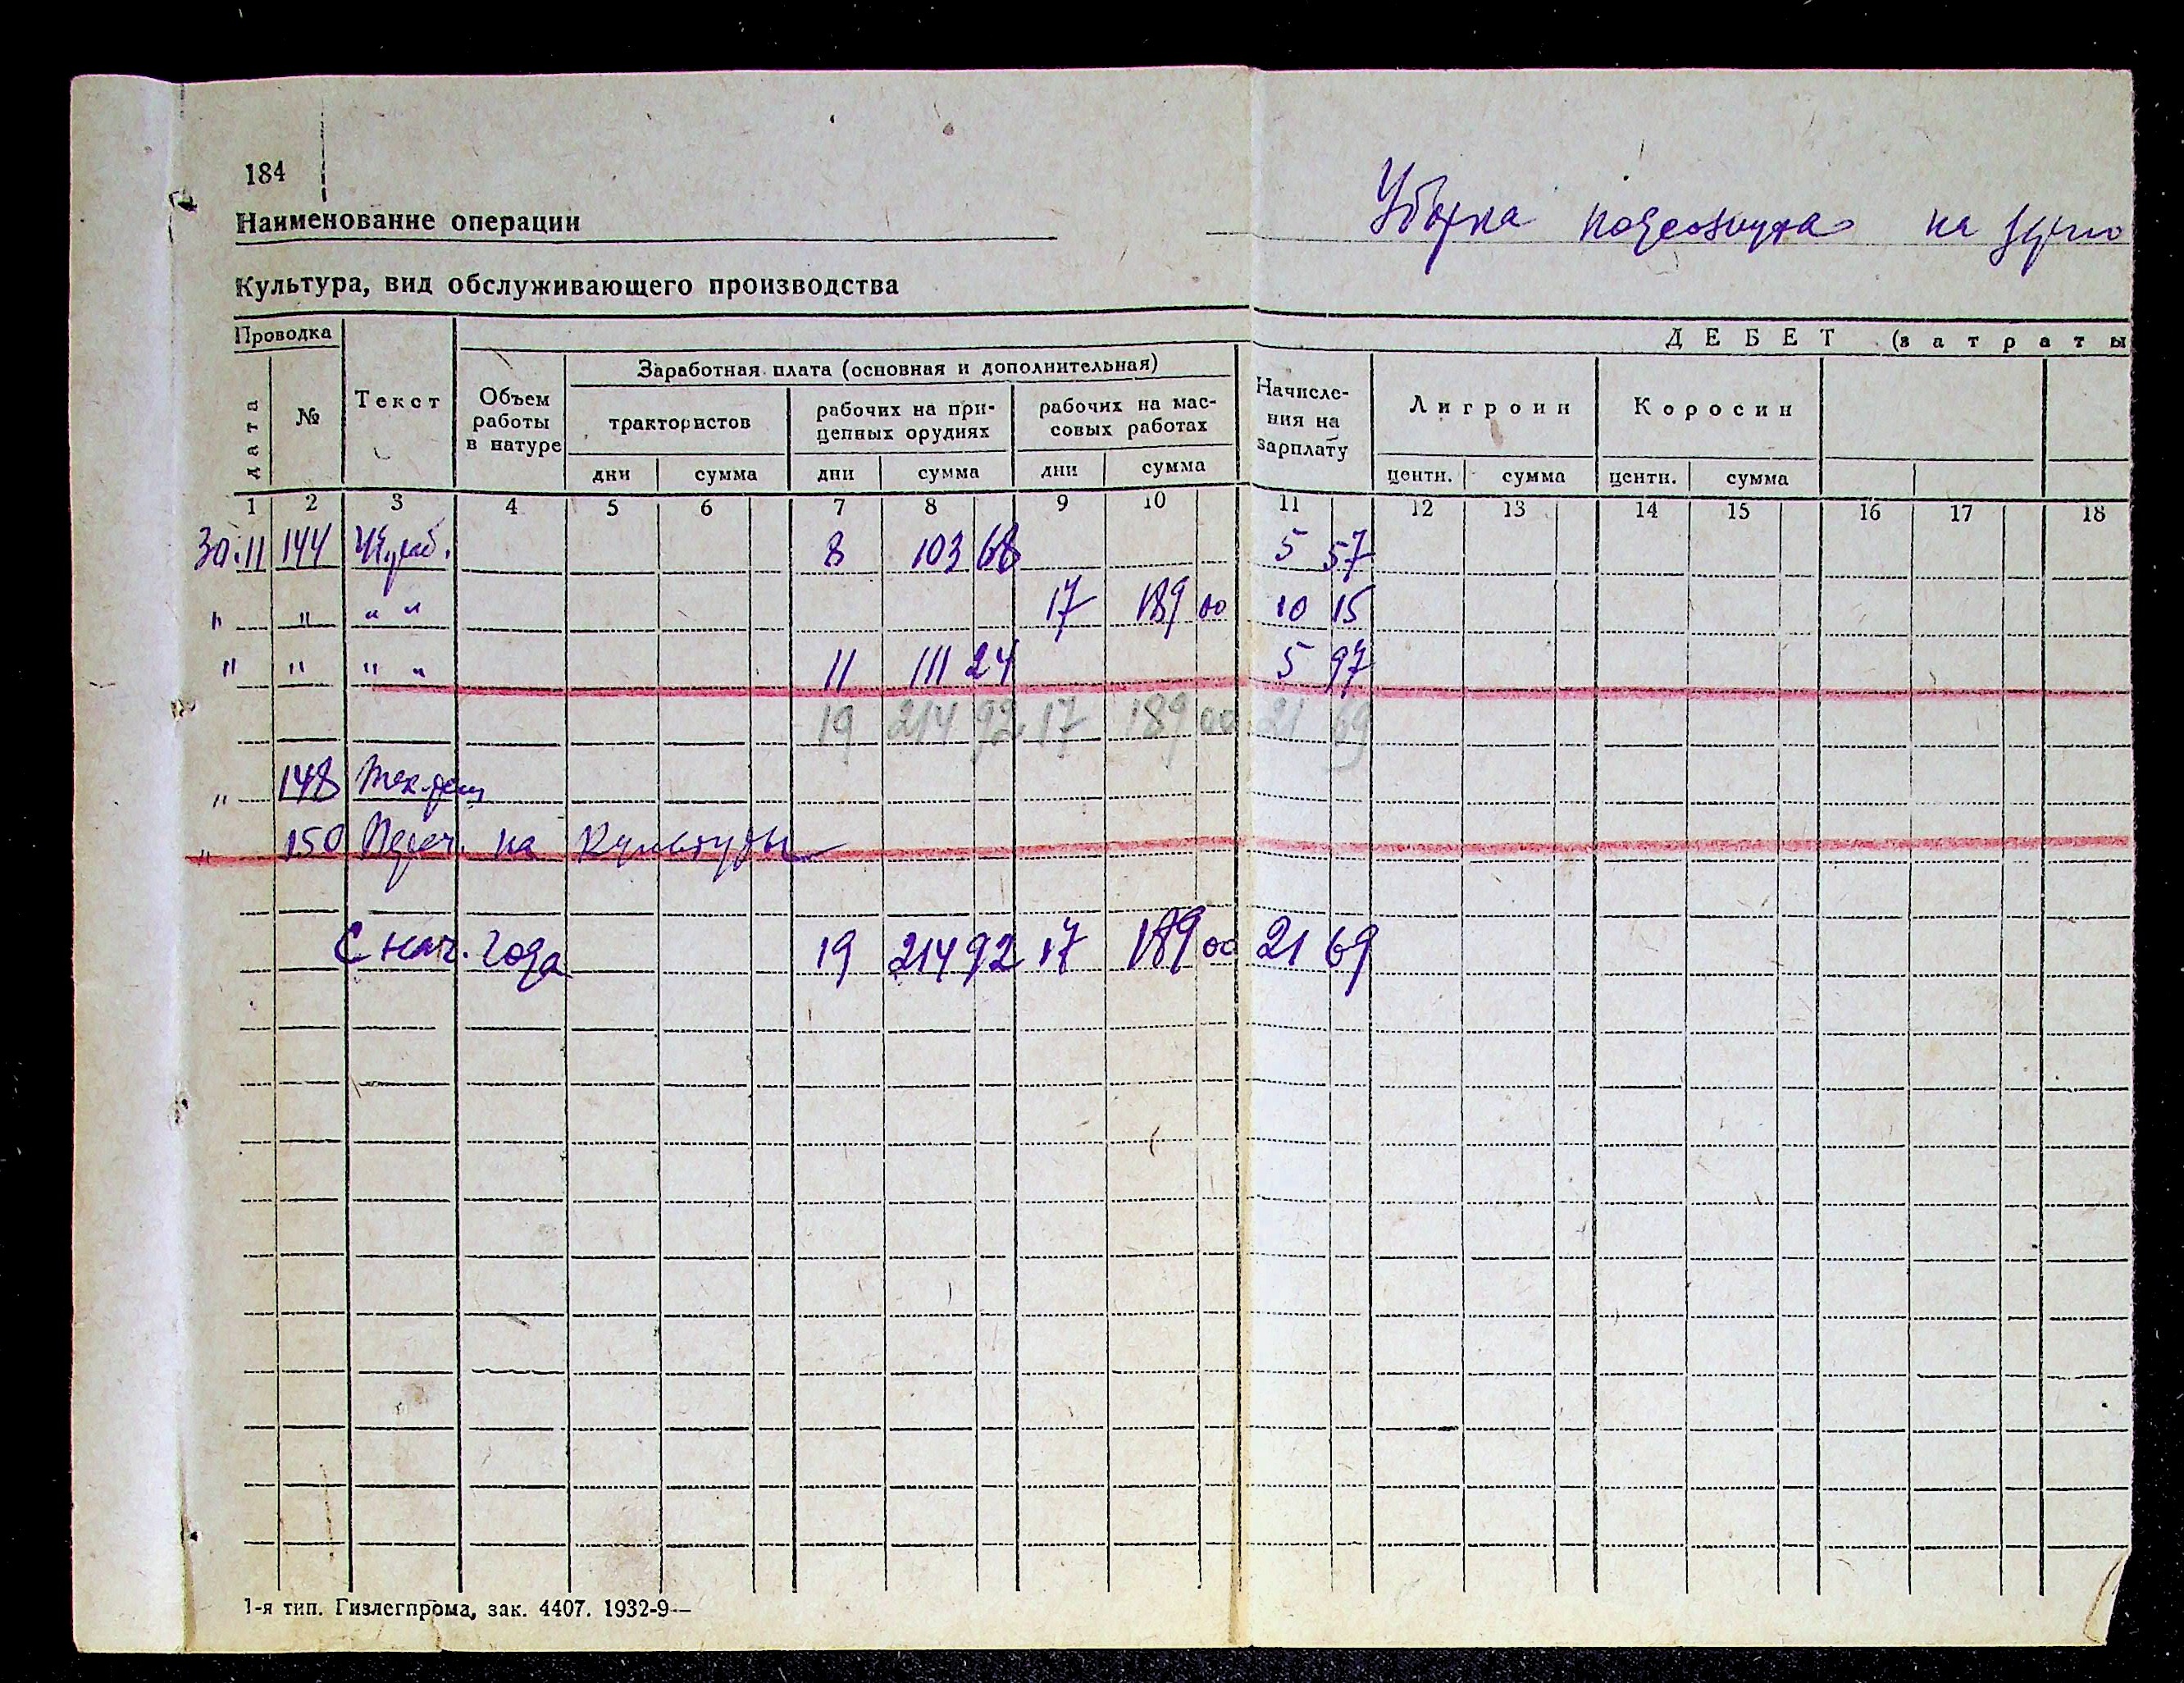 184
Наименование операции
Уборка подсолнуха на зерно
Культура, вид обслуживающего производства
Проводка
ДЕБЕТ (затраты
дата
№
Текст
Объем работы в натуре
Заработная плата (основная и дополнительная)
трактористов
рабочих на прицепных орудиях
рабочих на массовых работах
Начисления на зарплату
Лигроин
Коросин
дни сумма дни сумма дни сумма центн. сумма центн. сумма
1 2 3 4 5 6 7 8 9 10 11 12 13 14 15 16 17 18
30.11 144 8 103 68 5 57
" " " " 17 189 00 10 15
" " " " 11 111 24 5 97
19 214 92 17 189 00 21 69
" 148
" 150 Переч. на культуры
С нач. года 19 214 92 17 189 00 21 69
1-я тип. Гизлегпрома, зак. 4407. 1932-9—